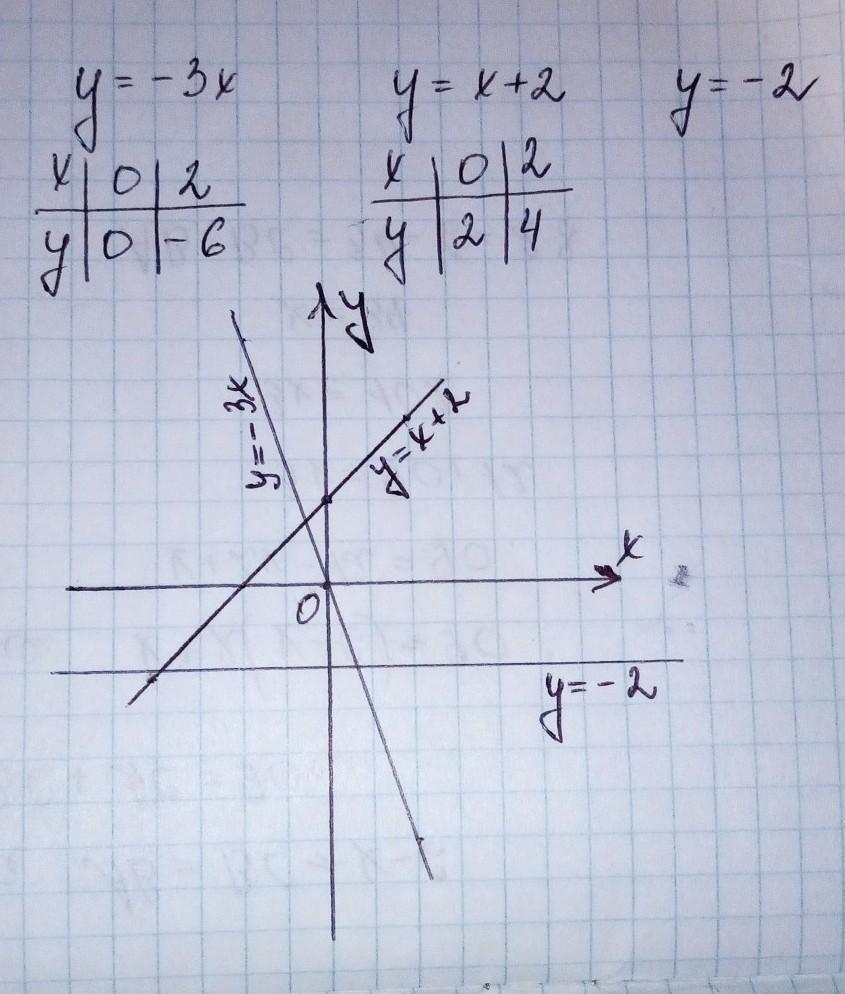 y = -3x y = x+2 y = -2
x 0 2 x 0 2
y 0 -6 y 2 4
y
y=-3x
y=x+2
x
0
y=-2